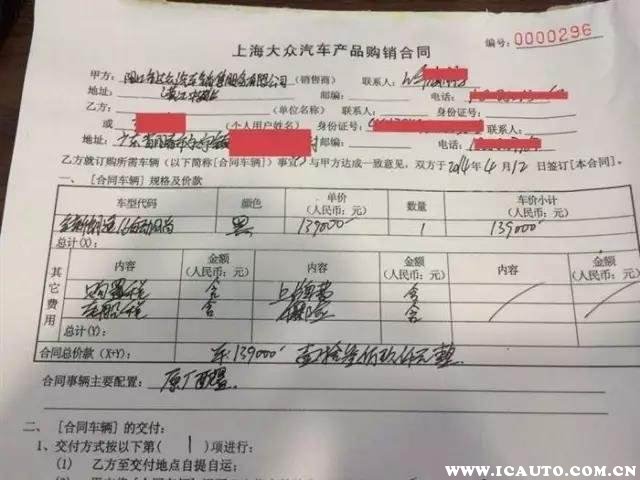 上海大众汽车产品购销合同
编号:0000296
甲方: 汽车销售服务有限公司 (销售商) 联系人:
地址: 邮编: 电话:
乙方: (单位名称) 身份证号:
或 (个人用户姓名) 身份证号: 联系人:
地址:广东省 邮编: 电话:
乙方就订购所需车辆(以下简称[合同车辆])事宜与甲方达成一致意见,双方于2014年4月12日签订[本合同]。
一、 [合同车辆]规格及价款
车型代码 颜色 单价(人民币:元) 数量 车价小计(人民币:元)
自动 黑 139000 1 139000
总计(X):
其它费用 内容 金额(人民币:元) 内容 金额(人民币:元) 内容 金额(人民币:元)
购置税 含 上牌费 含
车船税 含 保险 含
总计(Y):
合同总价款(X+Y): 139000 壹拾叁万玖仟元整
合同事辆主要配置: 原厂配置
二、 [合同车辆]的交付:
1、交付方式按以下第( 1 )项进行:
(1) 乙方至交付地点自提自运;
(2)
WWW.ICAUTO.COM.CN